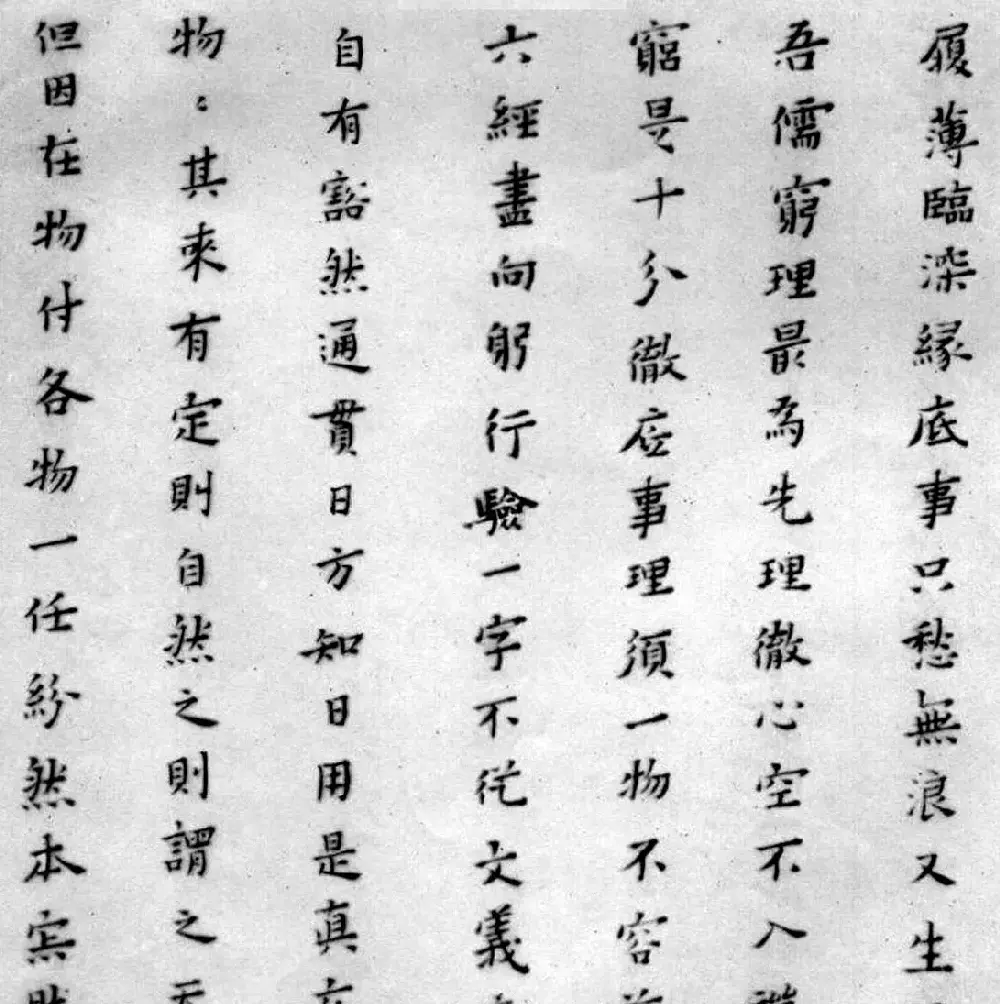 履薄臨深縁底事只愁無浪又生
吾儒窮理最為先理徹心空不入
窮是十分徹底事理須一物不容
六經盡向躬行驗一字不從文義
自有豁然通貫日方知日用是真
物〻其來有定則自然之則謂之
但因在物付各物一任紛然本㝉